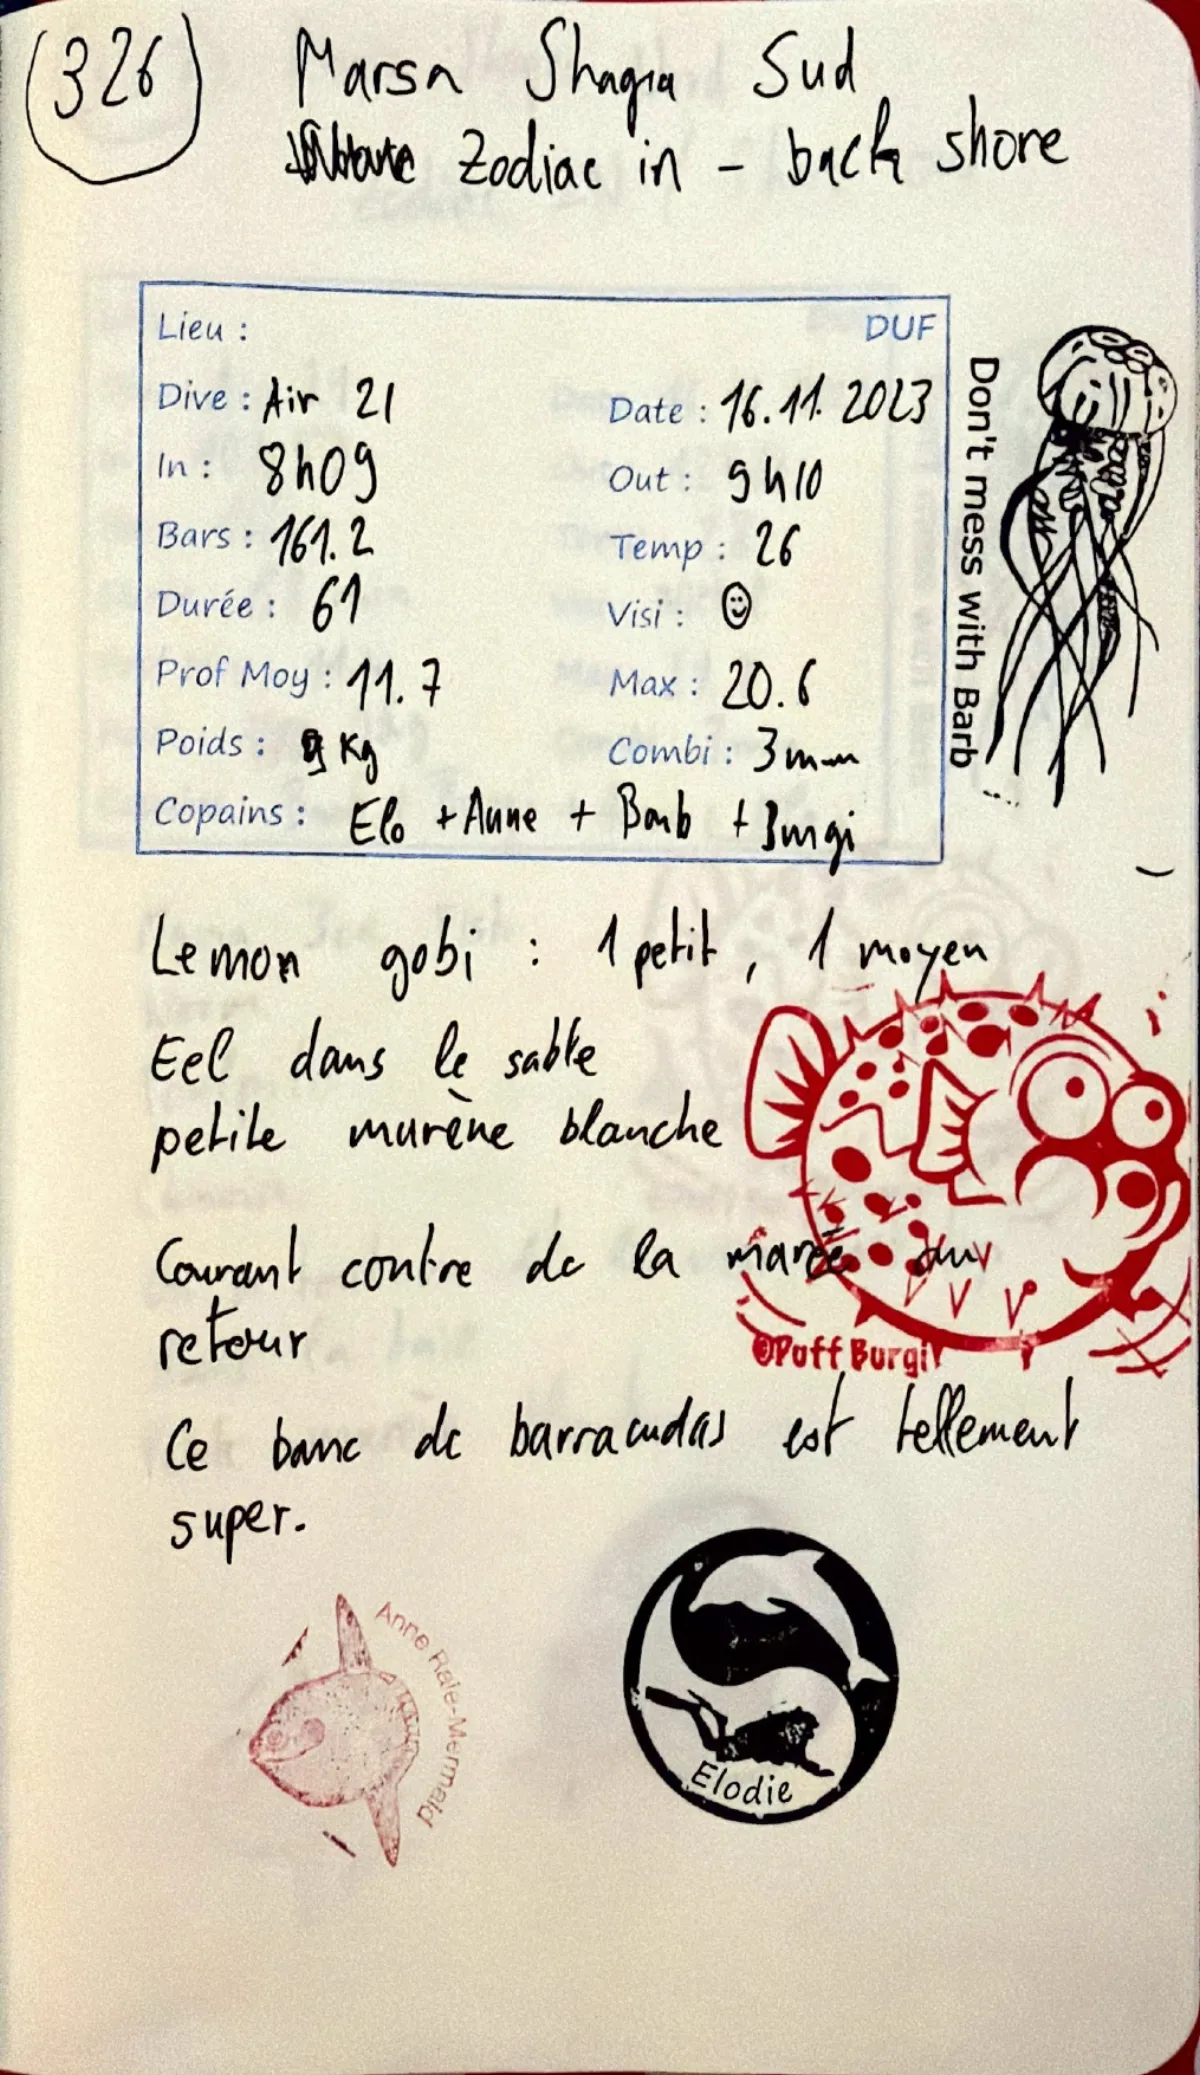 326
Marsa Shagra Sud
Zodiac in - back shore
Lieu : DUF
Dive : Air 21 Date : 16.11.2023
In : 8h09 Out : 9h10
Bars : 161.2 Temp : 26
Durée : 61 Visi : ☺
Prof Moy : 11.7 Max : 20.6
Poids : Kg Combi : 3mm
Copains : Elo + Anne + Barb + Burgi
Don't mess with Barb
Lemon gobi : 1 petit, 1 moyen
Eel dans le sable
petite murène blanche
Courant contre de la marée au
retour
©Puff Burgi
Ce banc de barracudas est tellement
super.
Anne Raie-Mermaid
Elodie